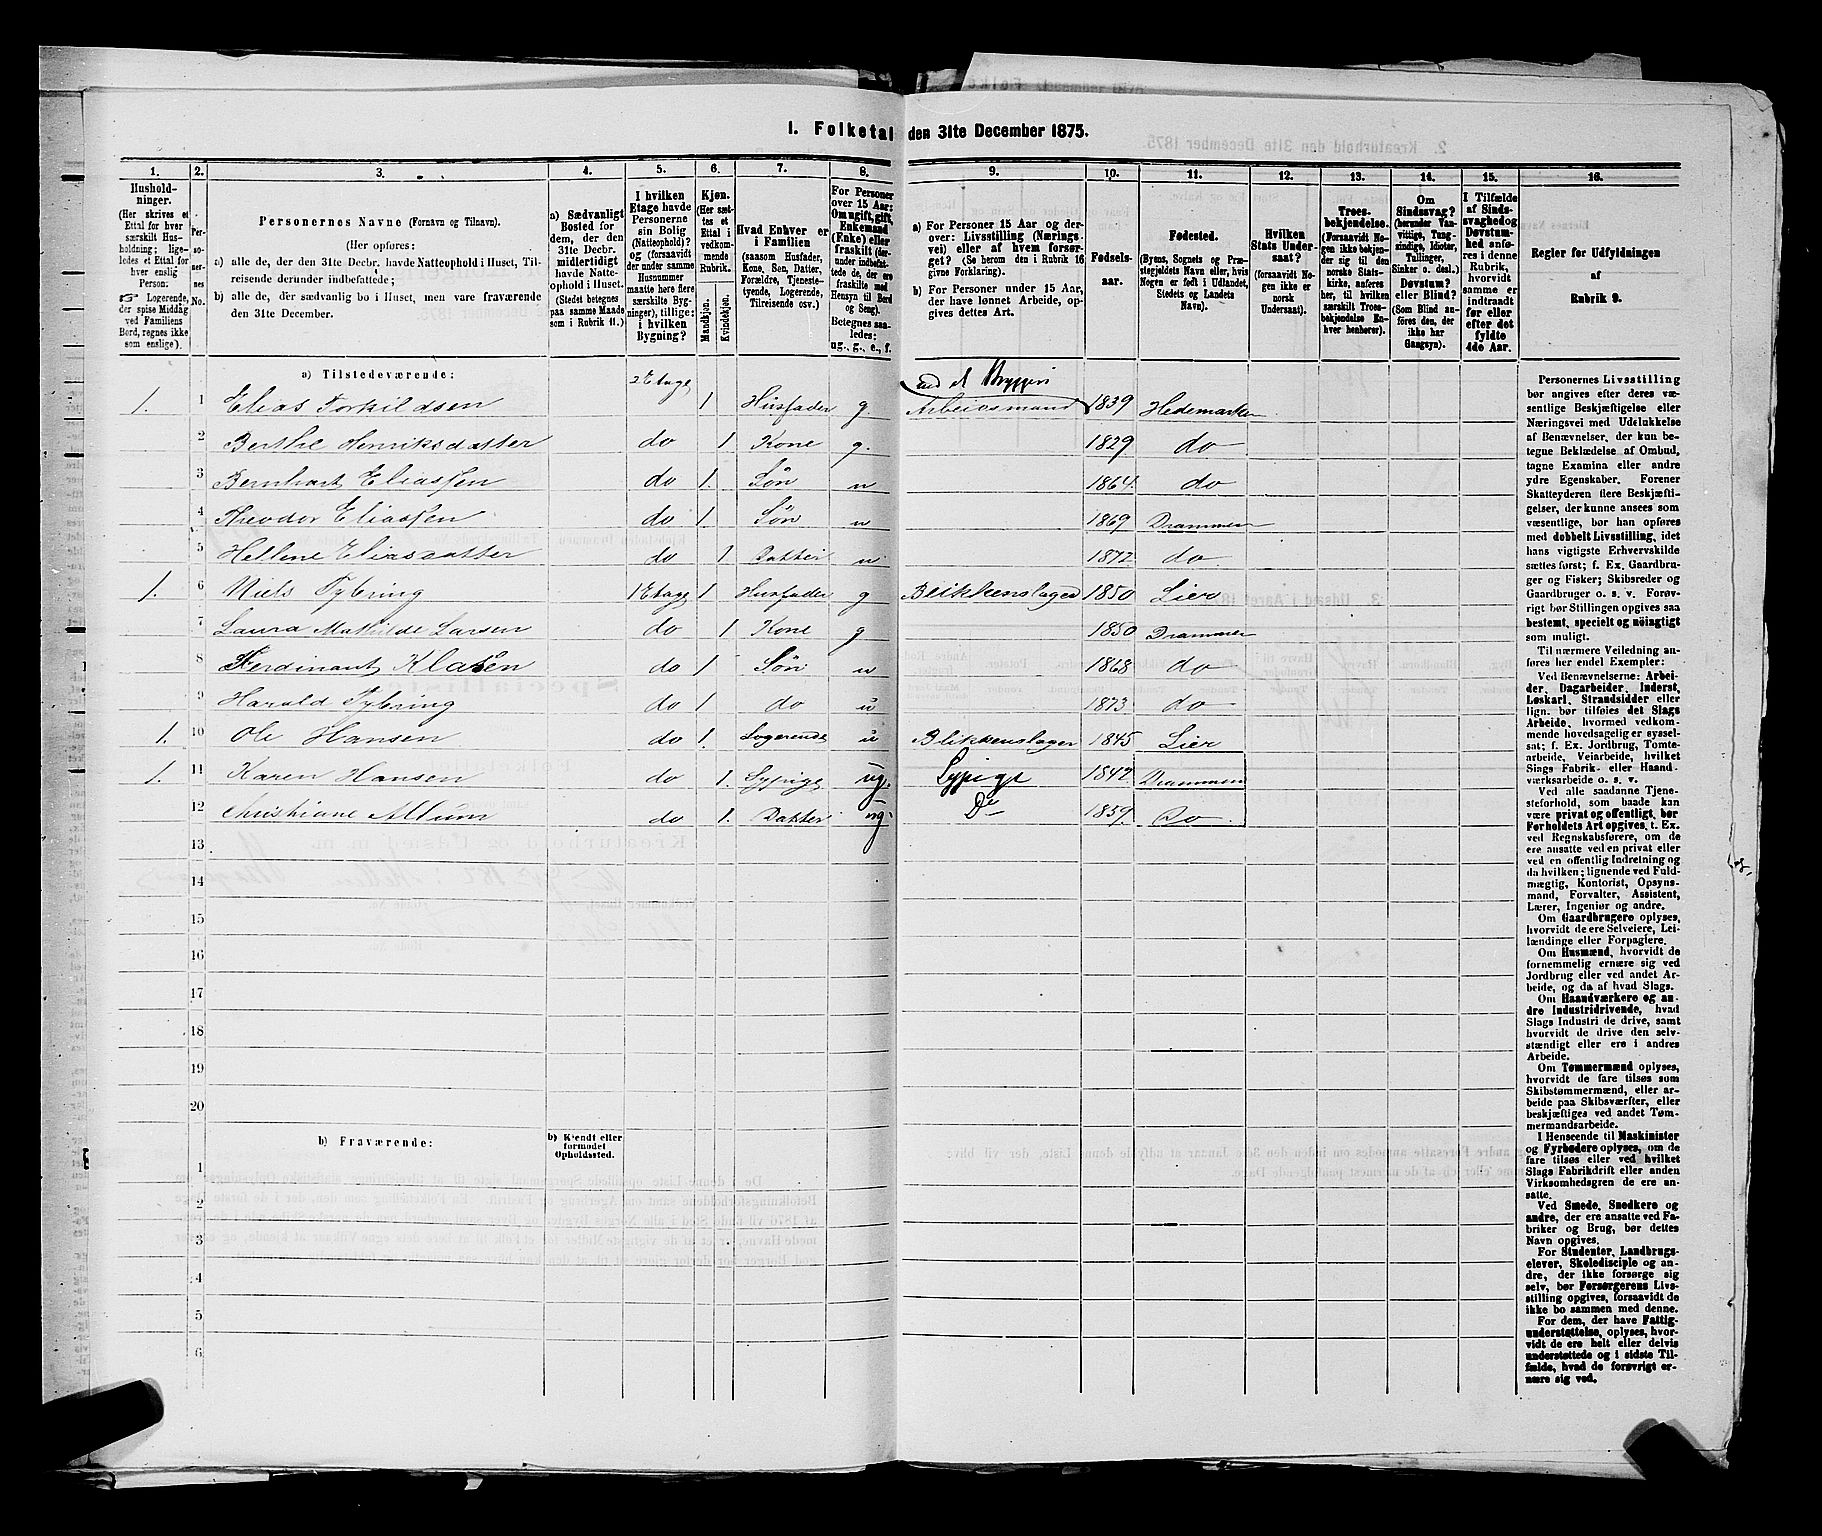 I. Folketal den 31te December 1875.
1. 2. 3. 4. 5. 6. 7. 8. 9. 10. 11. 12. 13. 14. 15. 16.
Hushold-
ninger.
(Her skrives et
Ettal for hver
særskilt Hus-
holdning; lige-
ledes et Ettal for
hver enslig
Person;
☞ Logerende,
der spise Middag
ved Familiens
Bord, regnes ikke
som enslige).
Per-
so-
ner-
nes
No.
Personernes Navne (Fornavn og Tilnavn).
(Her opføres:
a) alle de, der den 31te Decbr. havde Natteophold i Huset, Til-
reisende derunder indbefattede;
b) alle de, der sædvanlig bo i Huset, men vare fraværende
den 31te December.
a) Sædvanligt
Bosted for
dem, der den
31te Decbr.
midlertidigt
havde Natte-
ophold i Huset.
(Stedet betegnes
paa samme Maade
som i Rubrik 11.)
I hvilken
Etage havde
Personerne
sin Bolig
(Natteophold)?
og (forsaavidt
der under samme
Husnummer
maatte høre flere
særskilte Byg-
ninger), tillige:
i hvilken
Bygning?
Kjøn.
(Her sæt-
tes et
Ettal i
vedkom-
mende
Rubrik.
Mandkjøn.
Kvindekjøn.
Hvad Enhver er
i Familien
(saasom Husfader,
Kone, Søn, Datter,
Forældre, Tjeneste-
tyende, Logerende,
Tilreisende osv.)
For Personer
over 15 Aar:
Om ugift, gift,
Enkemand
(Enke) eller
fraskilt (der-
under indbefat-
tede de, der ere
fraskilte med
Hensyn til Bord
og Seng).
Betegnes saa-
ledes:
ug., g., e., f.
a) For Personer 15 Aar og der-
over: Livsstilling (Nærings-
vei) eller af hvem forsør-
get? (Se herom den i Rubrik 16
givne Forklaring).
b) For Personer under 15 Aar,
der have lønnet Arbeide, op-
gives dettes Art.
Fødsels-
aar.
Fødested.
(Byens, Sognets og Præ-
stegjeldets Navn eller, hvis
Nogen er født i Udlandet,
Stedets og Landets
Navn).
Hvilken
Stats Under-
saat?
(forsaavidt No-
gen ikke er
norsk
Undersaat).
Troes-
bekjendelse.
(Forsaavidt No-
gen ikke bekjen-
der sig til den
norske Stats-
kirke, anføres
her, til hvilken
særskilt Troes-
bekjendelse En-
hver henhører).
Om
Sindssvag?
(herunder Van-
vittige, Tung-
sindige, Idioter,
Tullinger,
Sinker o. desl.)
Døvstum?
eller Blind?
(Som Blind an-
føres den, der
ikke har
Gangsyn).
I Tilfælde
af Sinds-
svaghed og
Døvstum-
hed anfø-
res i denne
Rubrik,
hvorvidt
samme er
indtraadt
før eller
efter det
fyldte
4de Aar.
Regler for Udfyldningen
af
Rubrik 9.
a) Tilstedeværende:
ved et Bryggeri
1. 1 Elias Torkildsen 2 Etage 1 Husfader g. Arbeidsmand 1839 Hedemarken
2 Berthe Henriksdatter do 1. Kone g. 1829 do
3 Bernhart Eliassen do 1. Søn u 1864. do
4 Theodor Eliassen do 1. Søn u 1869 Drammen
5 Hellene Eliasdatter do 1 Datter u 1872 do
1. 6 Niels Tybring 1 Etage 1 Husfader g Blikkenslager 1850 Lier
7 Laura Mathilde Larsen do 1 Kone g 1850 Drammen
8 Ferdinant Klasen do 1 Søn u 1868 do
9 Harald Tybring do 1 do u 1873 do
1. 10 Ole Hansen do 1. Logerende u Blikkenslager 1845 Lier
1. 11 Karen Hansen do 1. Sypige ug. Sypige 1842 Drammen
12 Christiane Allum do 1. Datter ug. Do 1859. Do
13
14
15
16
17
18
19
20
b) Fraværende:
b) Kjendt eller
formodet
Opholdssted.
1
2
3
4
5
6
Personernes Livsstilling
bør angives efter deres væ-
sentlige Beskjæftigelse eller
Næringsvei med Udelukkelse
af Benævnelser, der kun be-
tegne Beklædelse af Ombud,
tagne Examina eller andre
ydre Egenskaber. Forener
Skatteyderen flere Beskjæfti-
gelser, der kunne ansees som
væsentlige, bør han opføres
med dobbelt Livsstilling, idet
hans vigtigste Erhvervskilde
sættes først; f. Ex. Gaardbru-
ger og Fisker; Skibsreder og
Gaardbruger o. s. v. Forøv-
rigt bør Stillingen opgives saa
bestemt, specielt og nöiagtigt
som muligt.
Til nærmere Veiledning an-
føres her endel Exempler:
Ved Benævnelserne: Arbei-
der, Dagarbeider, Inderst,
Løskarl, Strandsidder eller
lign. bør tilføies det Slags
Arbeide, hvormed vedkom-
mende hovedsagelig er syssel-
sat; f. Ex. Jordbrug, Tomte-
arbeide, Veiarbeide, hvilket
Slags Fabrik- eller Haand-
værksarbeide o. s. v.
Ved alle saadanne Tjene-
steforhold, som baade kan
være privat og offentlig, bør
Forholdets Art opgives, t. Ex.
ved Regnskabsførere, om de
ere ansatte ved en privat eller
ved en offentlig Indretning og
da hvilken; lignende ved Fuld-
mægtig, Kontorist, Opsyns-
mand, Forvalter, Assistent,
Lærer, Ingeniør og andre.
Om Gaardbrugere oplyses,
hvorvidt de ere Selveiere, Lei-
lændinge eller Forpagtere.
Om Husmænd, hvorvidt de
fornemmelig ernære sig ved
Jordbrug eller ved andet Ar-
beide, og da af hvad Slags.
Om Haandværkere og an-
dre Industridrivende, hvad
Slags Industri de drive, samt
hvorvidt de drive den selv-
stændigt eller ere i andres
Arbeide.
Om Tømmermænd oplyses,
hvorvidt de fare tilsøs som
Skibstømmermænd, eller ar-
beide paa Skibsværfter, eller
beskjæftiges ved andet Tøm-
mermandsarbeide.
I Henseende til Maskinister
og Fyrbødere oplyses, om de
fare tilsøs eller ved hvilket
Slags Fabrikdrift eller anden
Virksomhedsgren de ere an-
satte.
Ved Smede, Snedkere og
andre, der ere ansatte ved Fa-
briker og Brug, bør dettes
Navn opgives.
For Studenter, Landbrugs-
elever, Skoledisciple og an-
dre, der ikke forsørge sig
selv, bør Forsørgerens Livs-
stilling opgives, forsaavidt de
ikke bo sammen med denne.
For dem, der have Fattig-
understøttelse, oplyses, hvor-
vidt de ere helt eller delvis
understøttede og i sidste Til-
fælde, hvad de forøvrigt er-
nære sig ved.